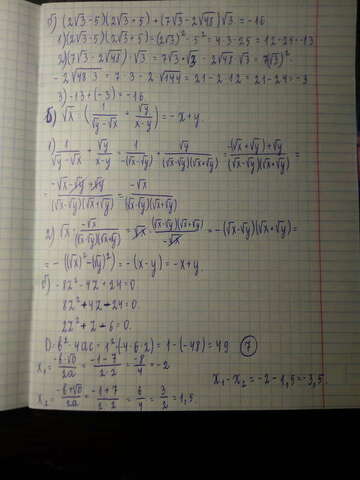 б) (2√3-5)(2√3+5)+(7√3-2√48)√3=-16
1)(2√3-5)(2√3+5)=(2√3)²-5²=4·3-25=12-25=-13
2)(7√3-2√48)·√3=7√3·√3-2√48·√3=7(√3)²-
-2√48·3=7·3-2√144=21-2·12=21-24=-3
3)-13+(-3)=-16
б) √x:(1/(√y-√x)+√y/(x-y))=-x+y.
1) 1/(√y-√x)+√y/(x-y)=1/(-(√x-√y))+√y/((√x-√y)(√x+√y))=(-(√x+√y)+√y)/((√x-√y)(√x+√y))=
=(-√x-√y+√y)/((√x-√y)(√x+√y))=-√x/((√x-√y)(√x+√y))
2) √x:-√x/((√x-√y)(√x+√y))=√x·(√x-√y)(√x+√y)/(-√x)=-(√x-√y)(√x+√y)=
=-((√x)²-(√y)²)=-(x-y)=-x+y.
б) -8z²-4z+24=0
8z²+4z-24=0.
2z²+z-6=0.
D=b²-4ac=1²-(4·6·2)=1-(-48)=49 (7)
x₁=(-b-√D)/2a=(-1-7)/(2·2)=-8/4=-2
x₁-x₂=-2-1,5=-3,5.
x₂=(-b+√D)/2a=(-1+7)/(2·2)=6/4=3/2=1,5.